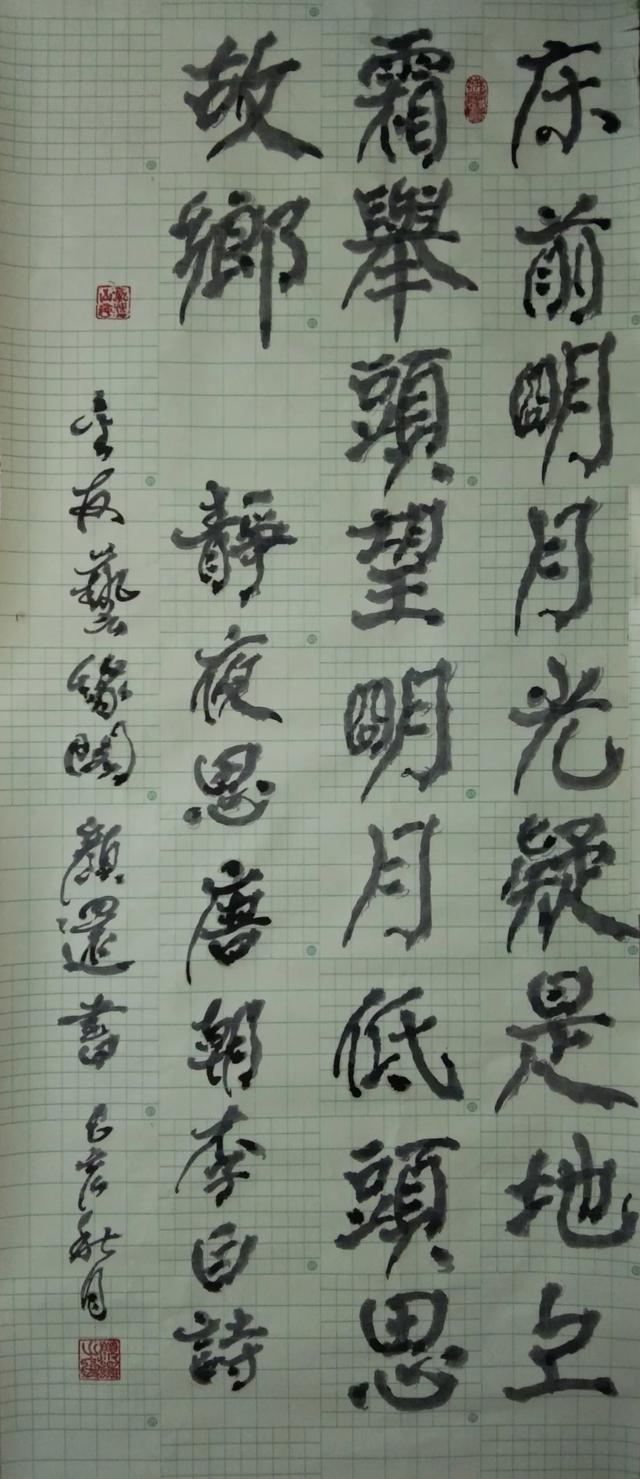 床前明月光疑是地上
霜舉頭望明月低頭思
故鄉 靜夜思唐朝李白詩
友藝緣閣顏還書己亥秋月